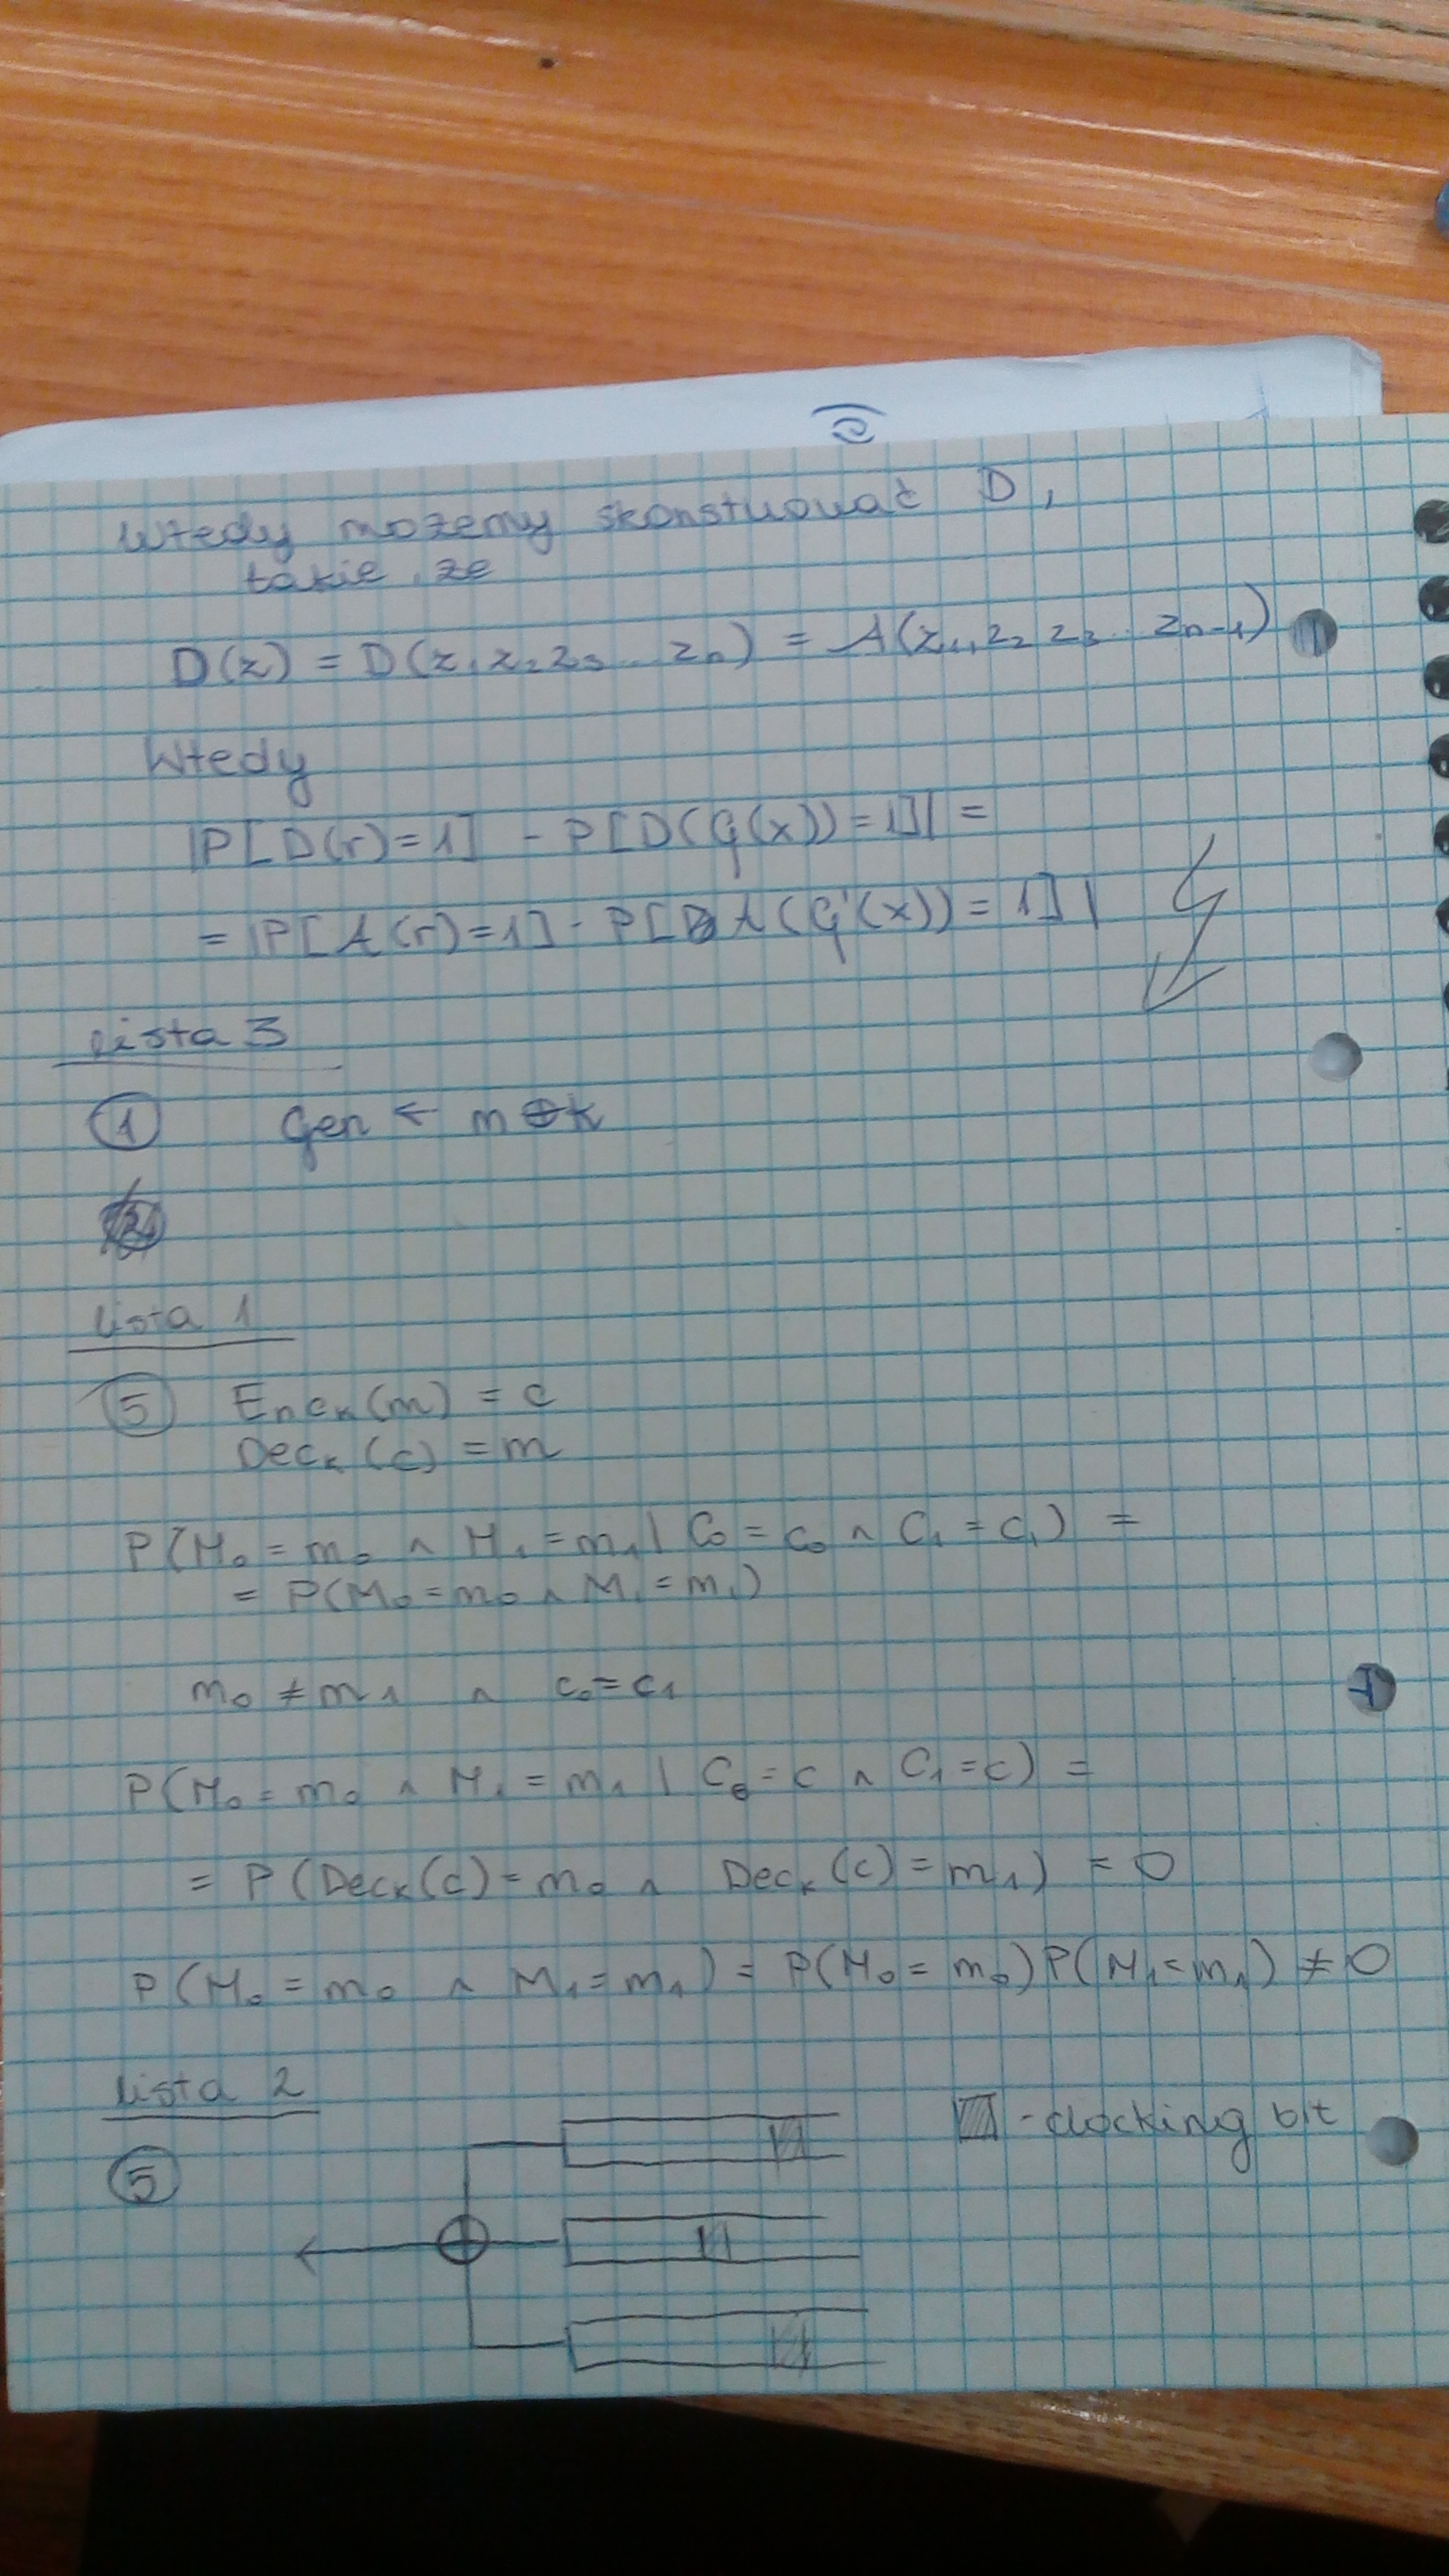 Wtedy możemy skonstuować D,
takie, że
D(z) = D(z₁ z₂ z₃ ... zₙ) = A(z₁, z₂ z₃ ... zₙ₋₁)
Wtedy
|P[D(r)=1] - P[D(G(x))=1]| =
= |P[A(r)=1] - P[A(G'(x))=1]|
lista 3
① Gen ← m⊕k
lista 1
⑤ Encₖ(m) = c
Decₖ(c) = m
P(M₀ = m₀ ∧ M₁ = m₁ | C₀ = c₀ ∧ C₁ = c₁) =
= P(M₀ = m₀ ∧ M₁ = m₁)
m₀ ≠ m₁ ∧ c₀ = c₁
P(M₀ = m₀ ∧ M₁ = m₁ | C₀ = c ∧ C₁ = c) =
= P(Decₖ(c) = m₀ ∧ Decₖ(c) = m₁) = 0
P(M₀ = m₀ ∧ M₁ = m₁) = P(M₀ = m₀)P(M₁ = m₁) ≠ 0
lista 2
- clocking bit
⑤